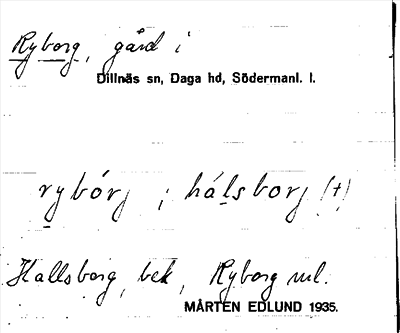 Ryborg, gård i
Dillnäs sn, Daga hd, Södermanl. l.
rybórj ; hálsborj (†)
Hallsborg, bek, Ryborg ml.
MÅRTEN EDLUND 1935.